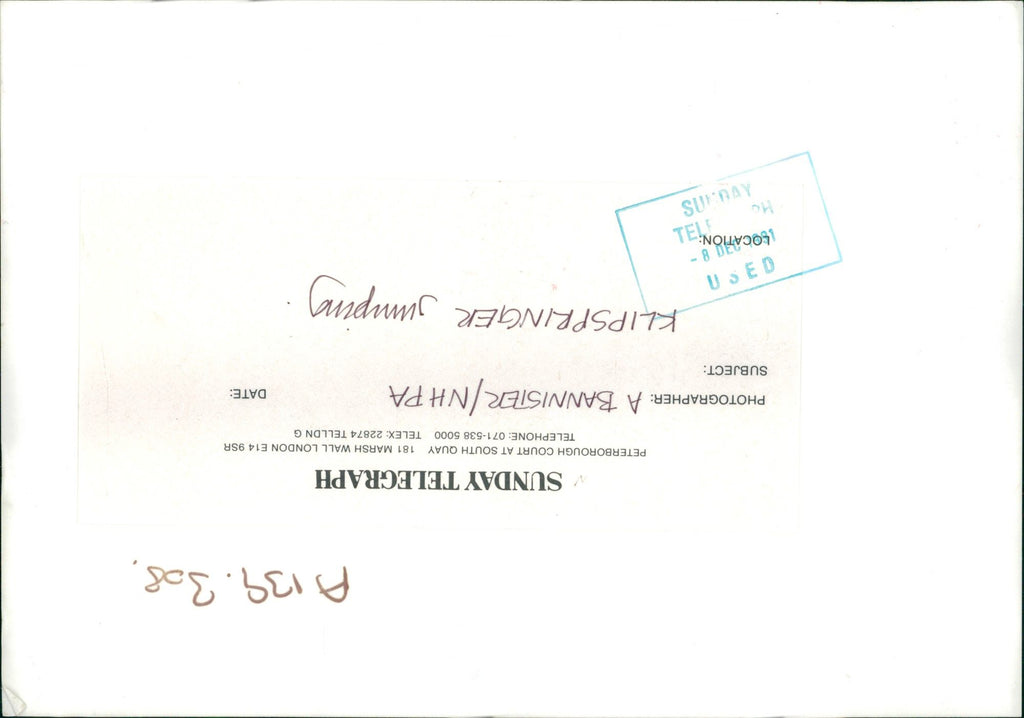 A139.308.
SUNDAY TELEGRAPH
PETERBOROUGH COURT AT SOUTH QUAY 181 MARSH WALL LONDON E14 9SR
TELEPHONE: 071-538 5000 TELEX: 22874 TELLDN G
PHOTOGRAPHER: A BANNISTER/NHPA DATE:
SUBJECT:
KLIPSPRINGER jumping.
LOCATION:
SUNDAY
TEL PH
-8 DEC 1991
USED